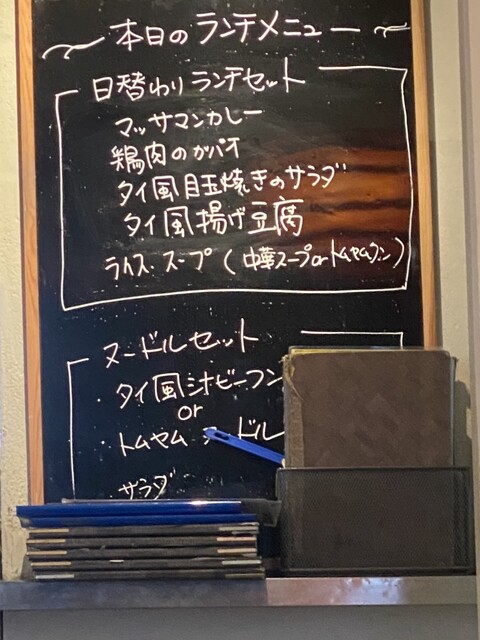 本日のランチメニュー
日替わりランチセット
マッサマンカレー
鶏肉のガパオ
タイ風目玉焼きのサラダ
タイ風揚げ豆腐
ライス・スープ(中華スープorトムヤムクン)
ヌードルセット
・タイ風汁ビーフン
or
・トムヤム ードル
サラダ